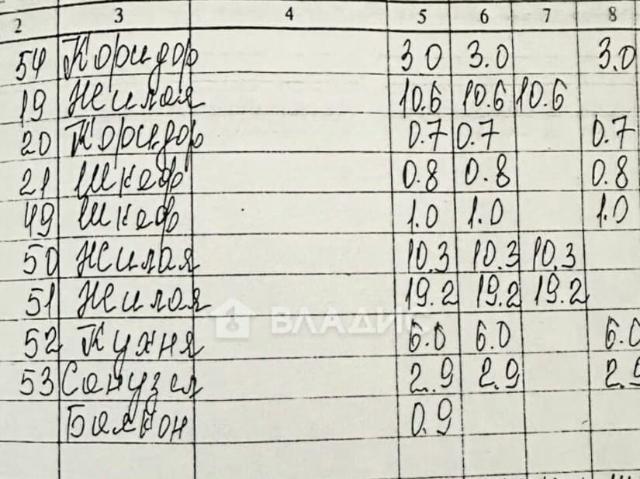 2 3 4 5 6 7 8
54 Коридор 3.0 3.0 3.0
19 Жилая 10.6 10.6 10.6
20 Коридор 0.7 0.7 0.7
21 Шкаф 0.8 0.8 0.8
49 Шкаф 1.0 1.0 1.0
50 Жилая 10.3 10.3 10.3
51 Жилая 19.2 19.2 19.2
ВЛАДИС
52 Кухня 6.0 6.0 6.0
53 Санузел 2.9 2.9 2.9
Балкон 0.9